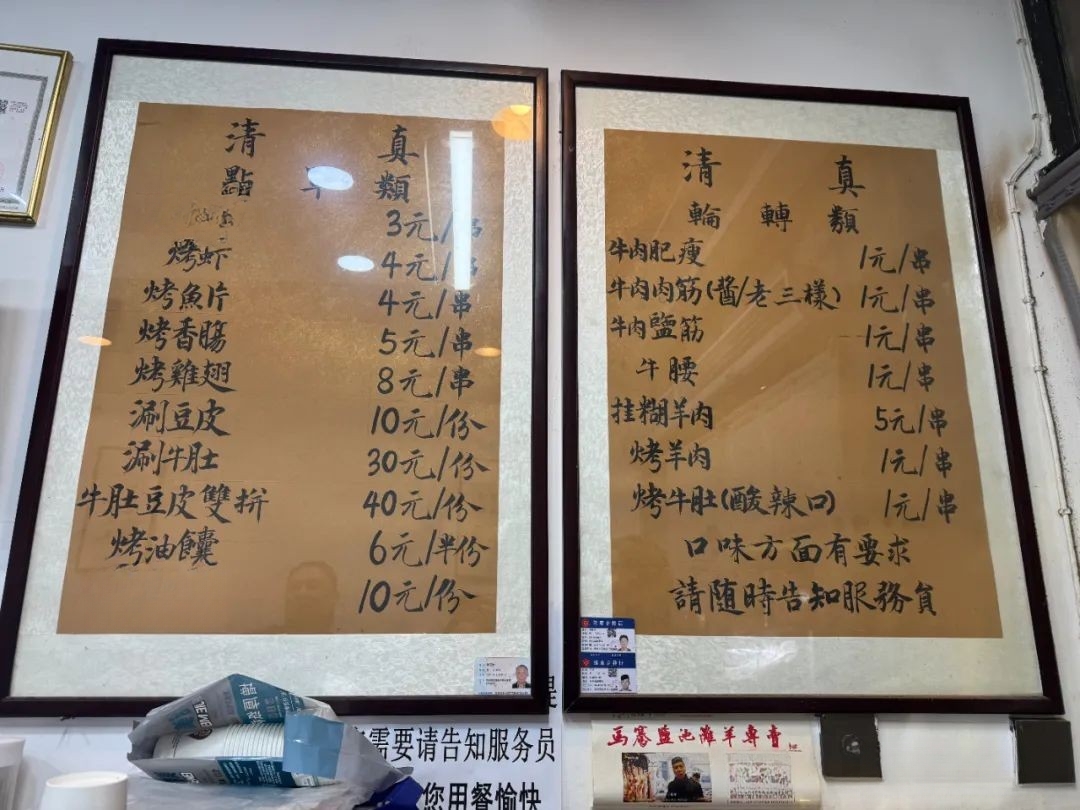 清真
點 類
3元/
烤虾 4元/
烤魚片 4元/串
烤香腸 5元/串
烤雞翅 8元/串
涮豆皮 10元/份
涮牛肚 30元/份
牛肚豆皮雙拼 40元/份
烤油饢 6元/半份
10元/份
清真
輪轉類
牛肉肥瘦 1元/串
牛肉肉筋(醬/老三樣) 1元/串
牛肉鹽筋 1元/串
牛腰 1元/串
挂糊羊肉 5元/串
烤羊肉 1元/串
烤牛肚(酸辣口) 1元/串
口味方面有要求
請随時告知服務員
需要请告知服务员
您用餐愉快
鹽池灘羊專